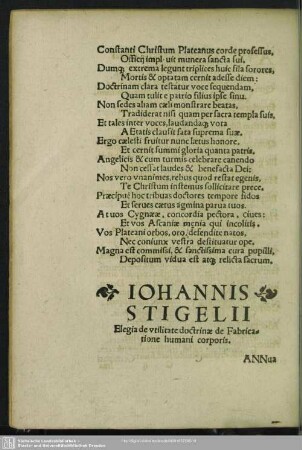 Constanti Christum Plateanus corde professus,
Officij impleuit munera sancta sui.
Dumq; extrema legunt triplices huic fila sorores,
Mortis & optatam cernit adesse diem:
Doctrinam clara testatur voce sequendam,
Quam tulit e patrio filius ipse sinu.
Non sedes aliam cæli monstrare beatas,
Tradiderat nisi quam per sacra templa suis.
Et tales inter voces, laudandaq; vota
Ætatis clausit fata suprema suæ.
Ergo cælesti fruitur nunc lætus honore,
Et cernit summi gloria quanta patris.
Angelicis & cum turmis celebrare canendo
Non cessat laudes & benefacta Dei:
Nos vero vnanimes, rebus quod restat egenis,
Te Christum instemus sollicitare prece,
Præcipue hoc tribuas doctores tempore fidos
Et serues cætus agmina parua tuos.
At uos Cygnææ, concordia pectora, ciues:
Et vos Ascaniæ mœnia qui incolitis,
Vos Plateani orbos, oro, defendite natos,
Nec coniunx vestra destituatur ope.
Magna est commissi, & sanctissima cura pupilli,
Depositum vidua est atq; relicta sacrum.
IOHANNIS
STIGELII
Elegia de vtilitate doctrinæ de Fabrica-
tione humani corporis.
ANNua